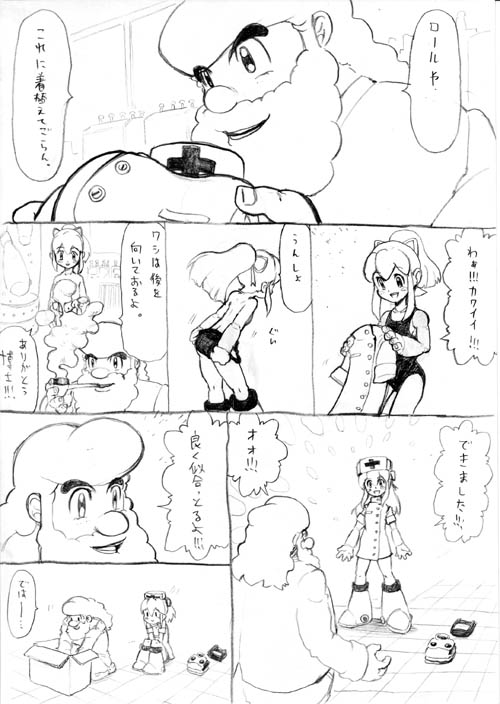 ロールや.
これに着替えてごらん。
わぁ!!!カワイイ!!!
うんしょ
ぐい
ワシは後を
向いておるよ。
ありがとう
博士!!!
できました!!!
オオ!!!
良く似合っとるよ!!!
では──…